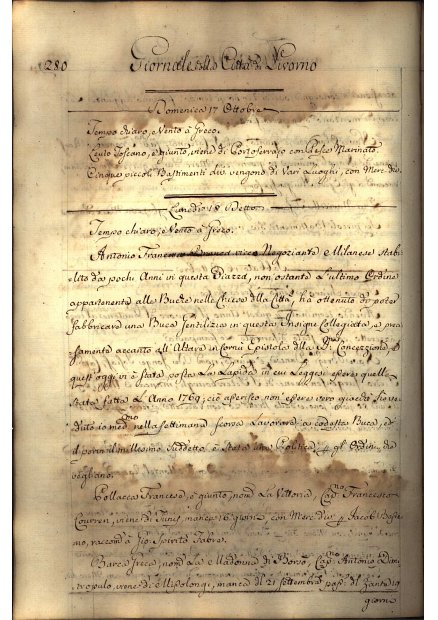 280 Giornale della Città di Livorno
Domenica 17 Ottobre
Tempo chiaro, e Vento à Greco.
Leuto Toscano, è giunto, viene di Portoferraio con Pesce Marinato.
Cinque piccoli Bastimenti che vengono di Vari Luoghi, con Merc. div.
Lunedio 18 Detto
Tempo chiaro, e Vento à Greco.
Antonio Francesco ricco Negoziante Milanese stab-
ilito da pochi Anni in questa Piazza, non ostante L'ultimo Ordine
appartenente alle Buche nelle Chiese della Città, ha ottenuto di poter
fabbricare una Buca Gentilizia in questa Insigne Collegiata, e pre-
samente accanto all'Altare in Cornu Epistola della Concezione, e
quest'oggi vi è stata posta La Lapida in cui Leggesi essere quella
stata fatta L'Anno 1769; ciò asperisco non essere vero giacchè ho ve-
duto io med.mo nella settimana scorsa Lavorare a codesta Buca, ed
il porvi il millesimo Suddetto è stata una Politica gl'Ordini, che
vegliano.
Pollacca Francese, è giunto, nom.a La Vittoria, Cap.no Francesco
Couvren, viene di Tunis manca 16 giorni, con Merc. div. Jacob Bosse-
no, raccom.a à Gio. Spirito Fabre.
Barca Greca, nom.a La Madonna di Borso, Cap.no Antonio
tropulo, viene di Misolongi, manca di 21 settembre, pass. di Zante 19
giorni